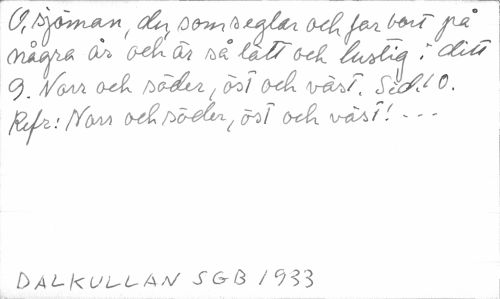 O, sjöman, du som seglar och far bort på
några år och är så lätt och lustig i ditt
9. Norr och söder, öst och väst. Sid. 10.
Refr: Norr och söder, öst och väst! ---
DALKULLAN SGB 1933